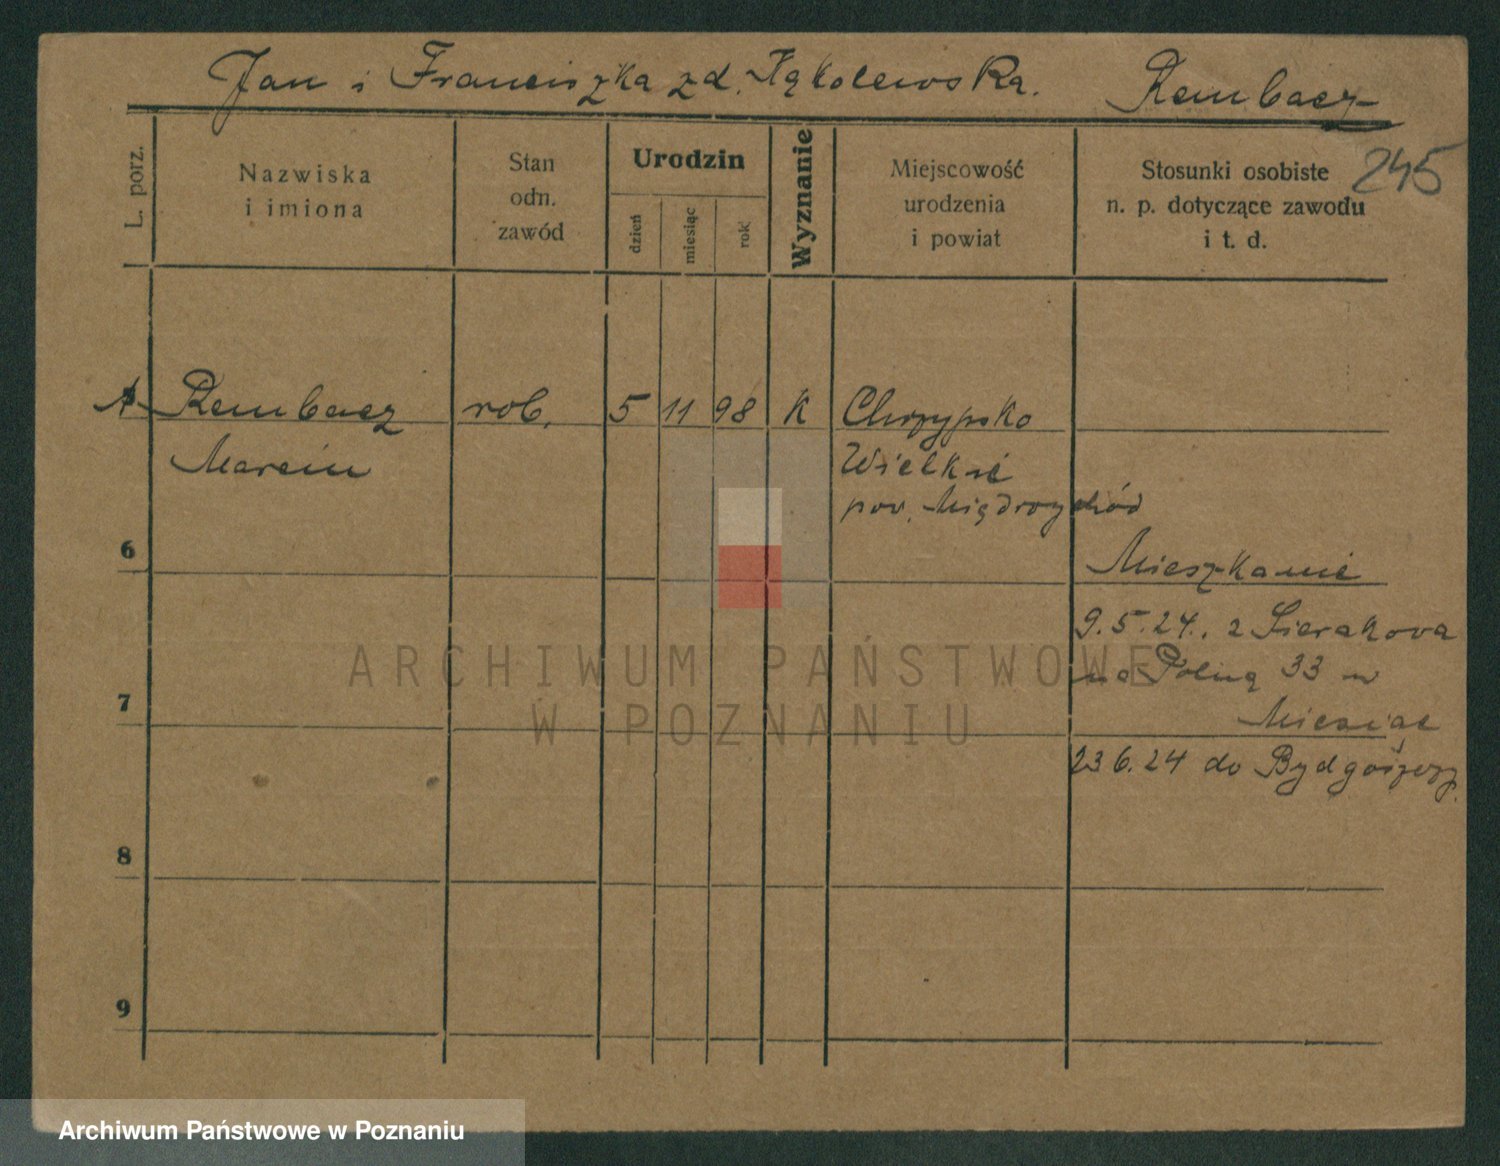 Jan i Franciszka zd. Kąkolewska. Rembacz
245
L. porz.
Nazwiska
i imiona
Stan
odn.
zawód
Urodzin
dzień
miesiąc
rok
Wyznanie
Miejscowość
urodzenia
i powiat
Stosunki osobiste
n. p. dotyczące zawodu
i t. d.
Rembacz rob. 5 11 98 K Chrzypsko
Marcin Wielkie
pow. Międzychód
6
Mieszkanie
9.5.24. z Sierakowa
na Polną 33 w
7
23 6.24 do Bydgoszczy.
8
9
ARCHIWUM PAŃSTWOWE
W POZNANIU
Archiwum Państwowe w Poznaniu